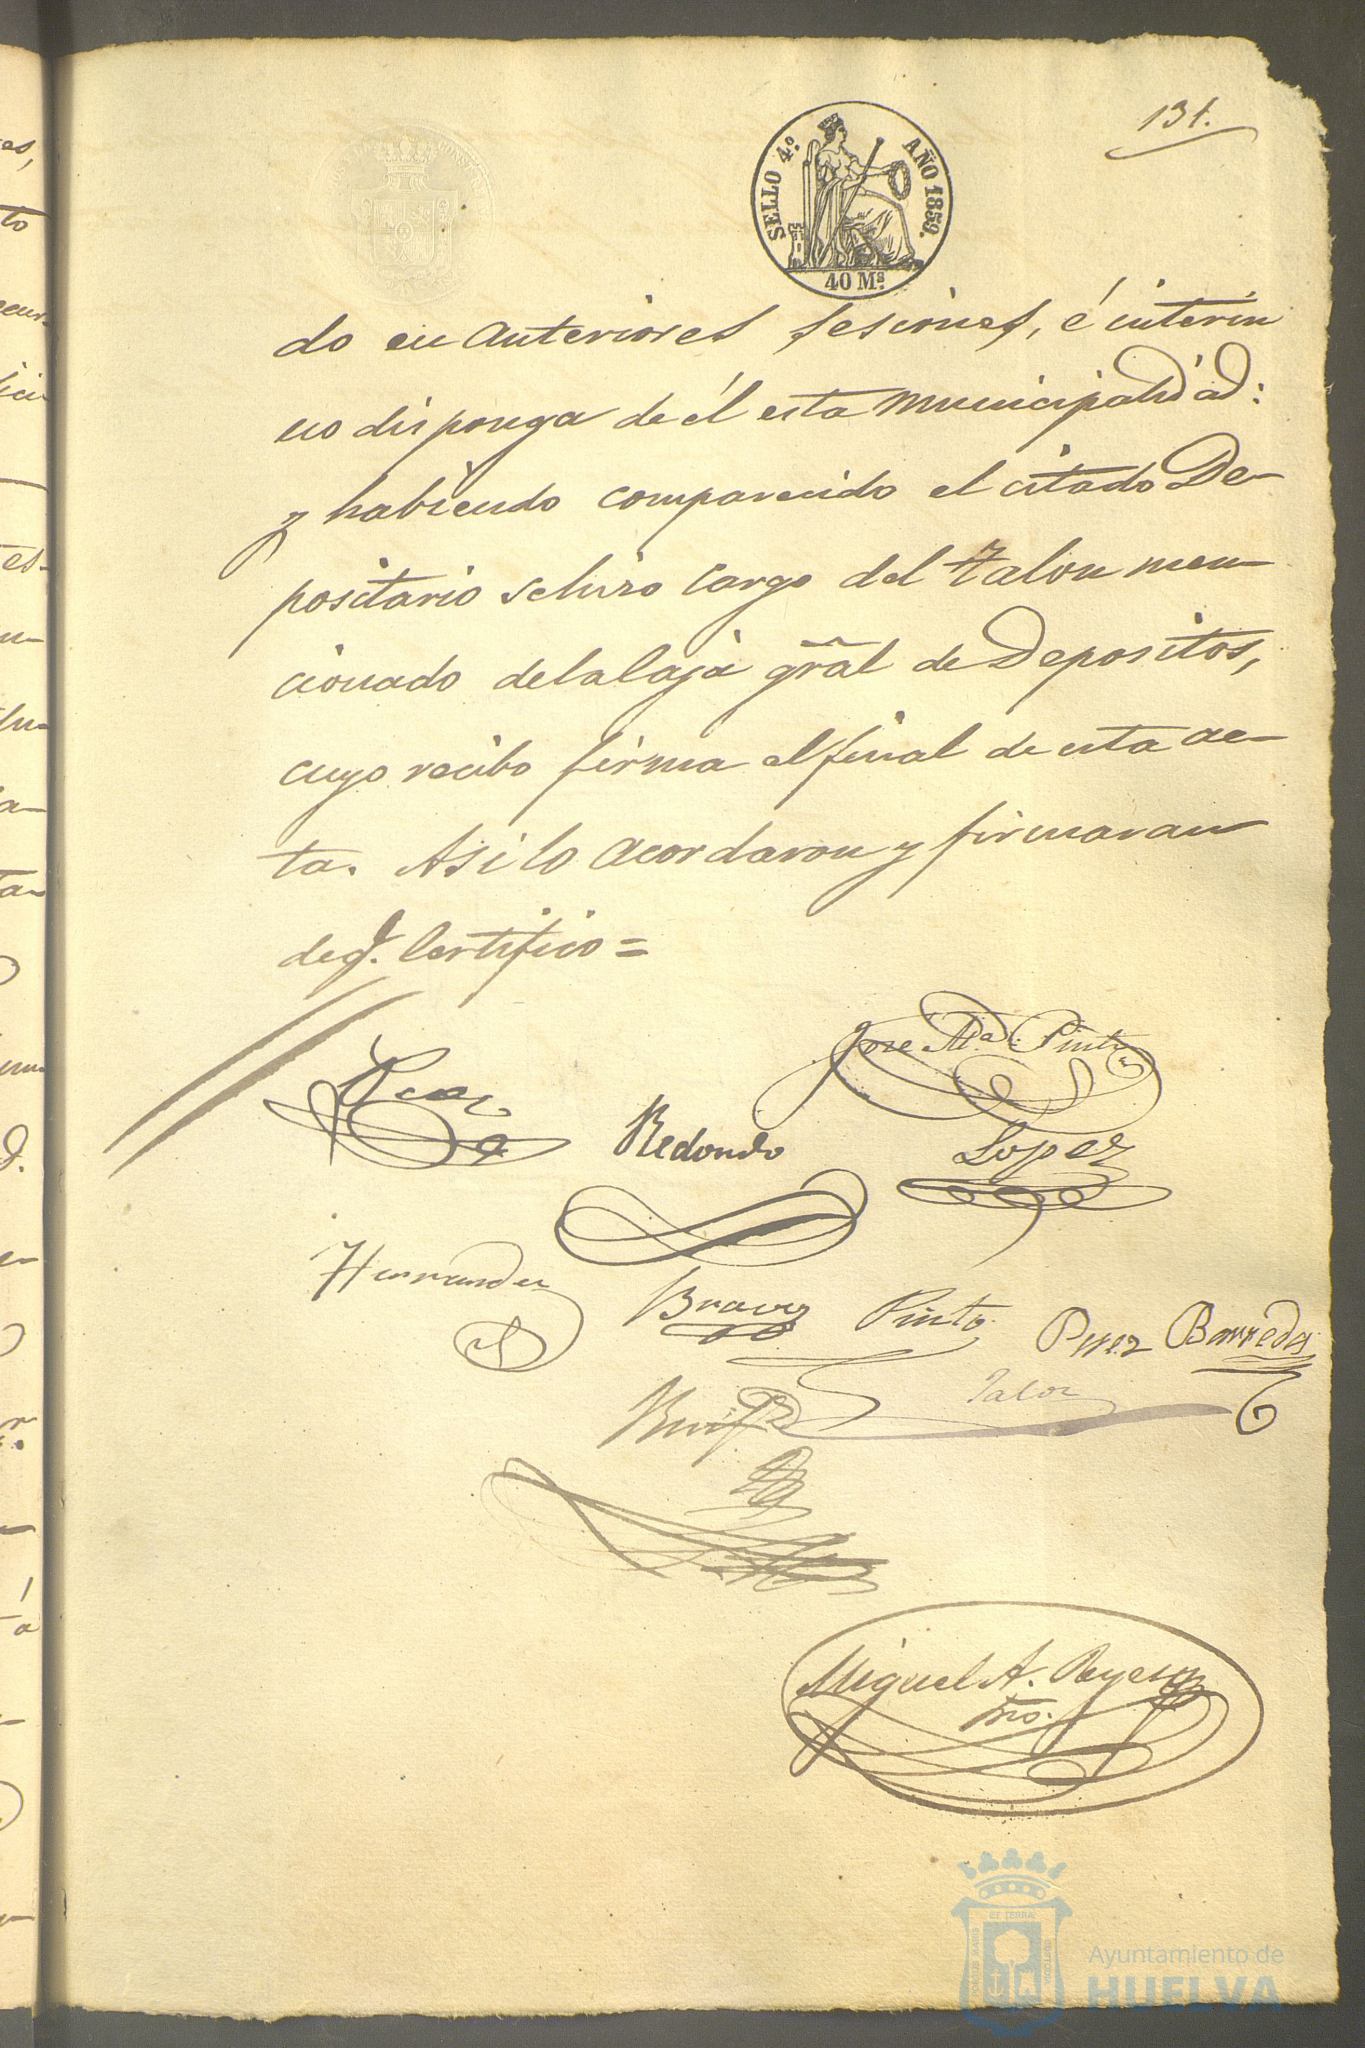 131.
SELLO 4.º AÑO 1859.
40 Mˢ.
do en anteriores sesiones, é interin
no disponga de él esta municipalidad:
y habiendo comparecido el citado De-
positario se hizo cargo del Talon men-
cionado de la Caja gral de Depositos,
cuyo recibo firma al final de esta ac-
ta. Asi lo acordaron y firmaran
de q.e Certifico =
Jose M.ª Pinto
Redondo
Lopez
Hernandez
Bravo
Pinto
Perez Barreda
Miguel A. Reyes
Srio.
Ayuntamiento de
HUELVA